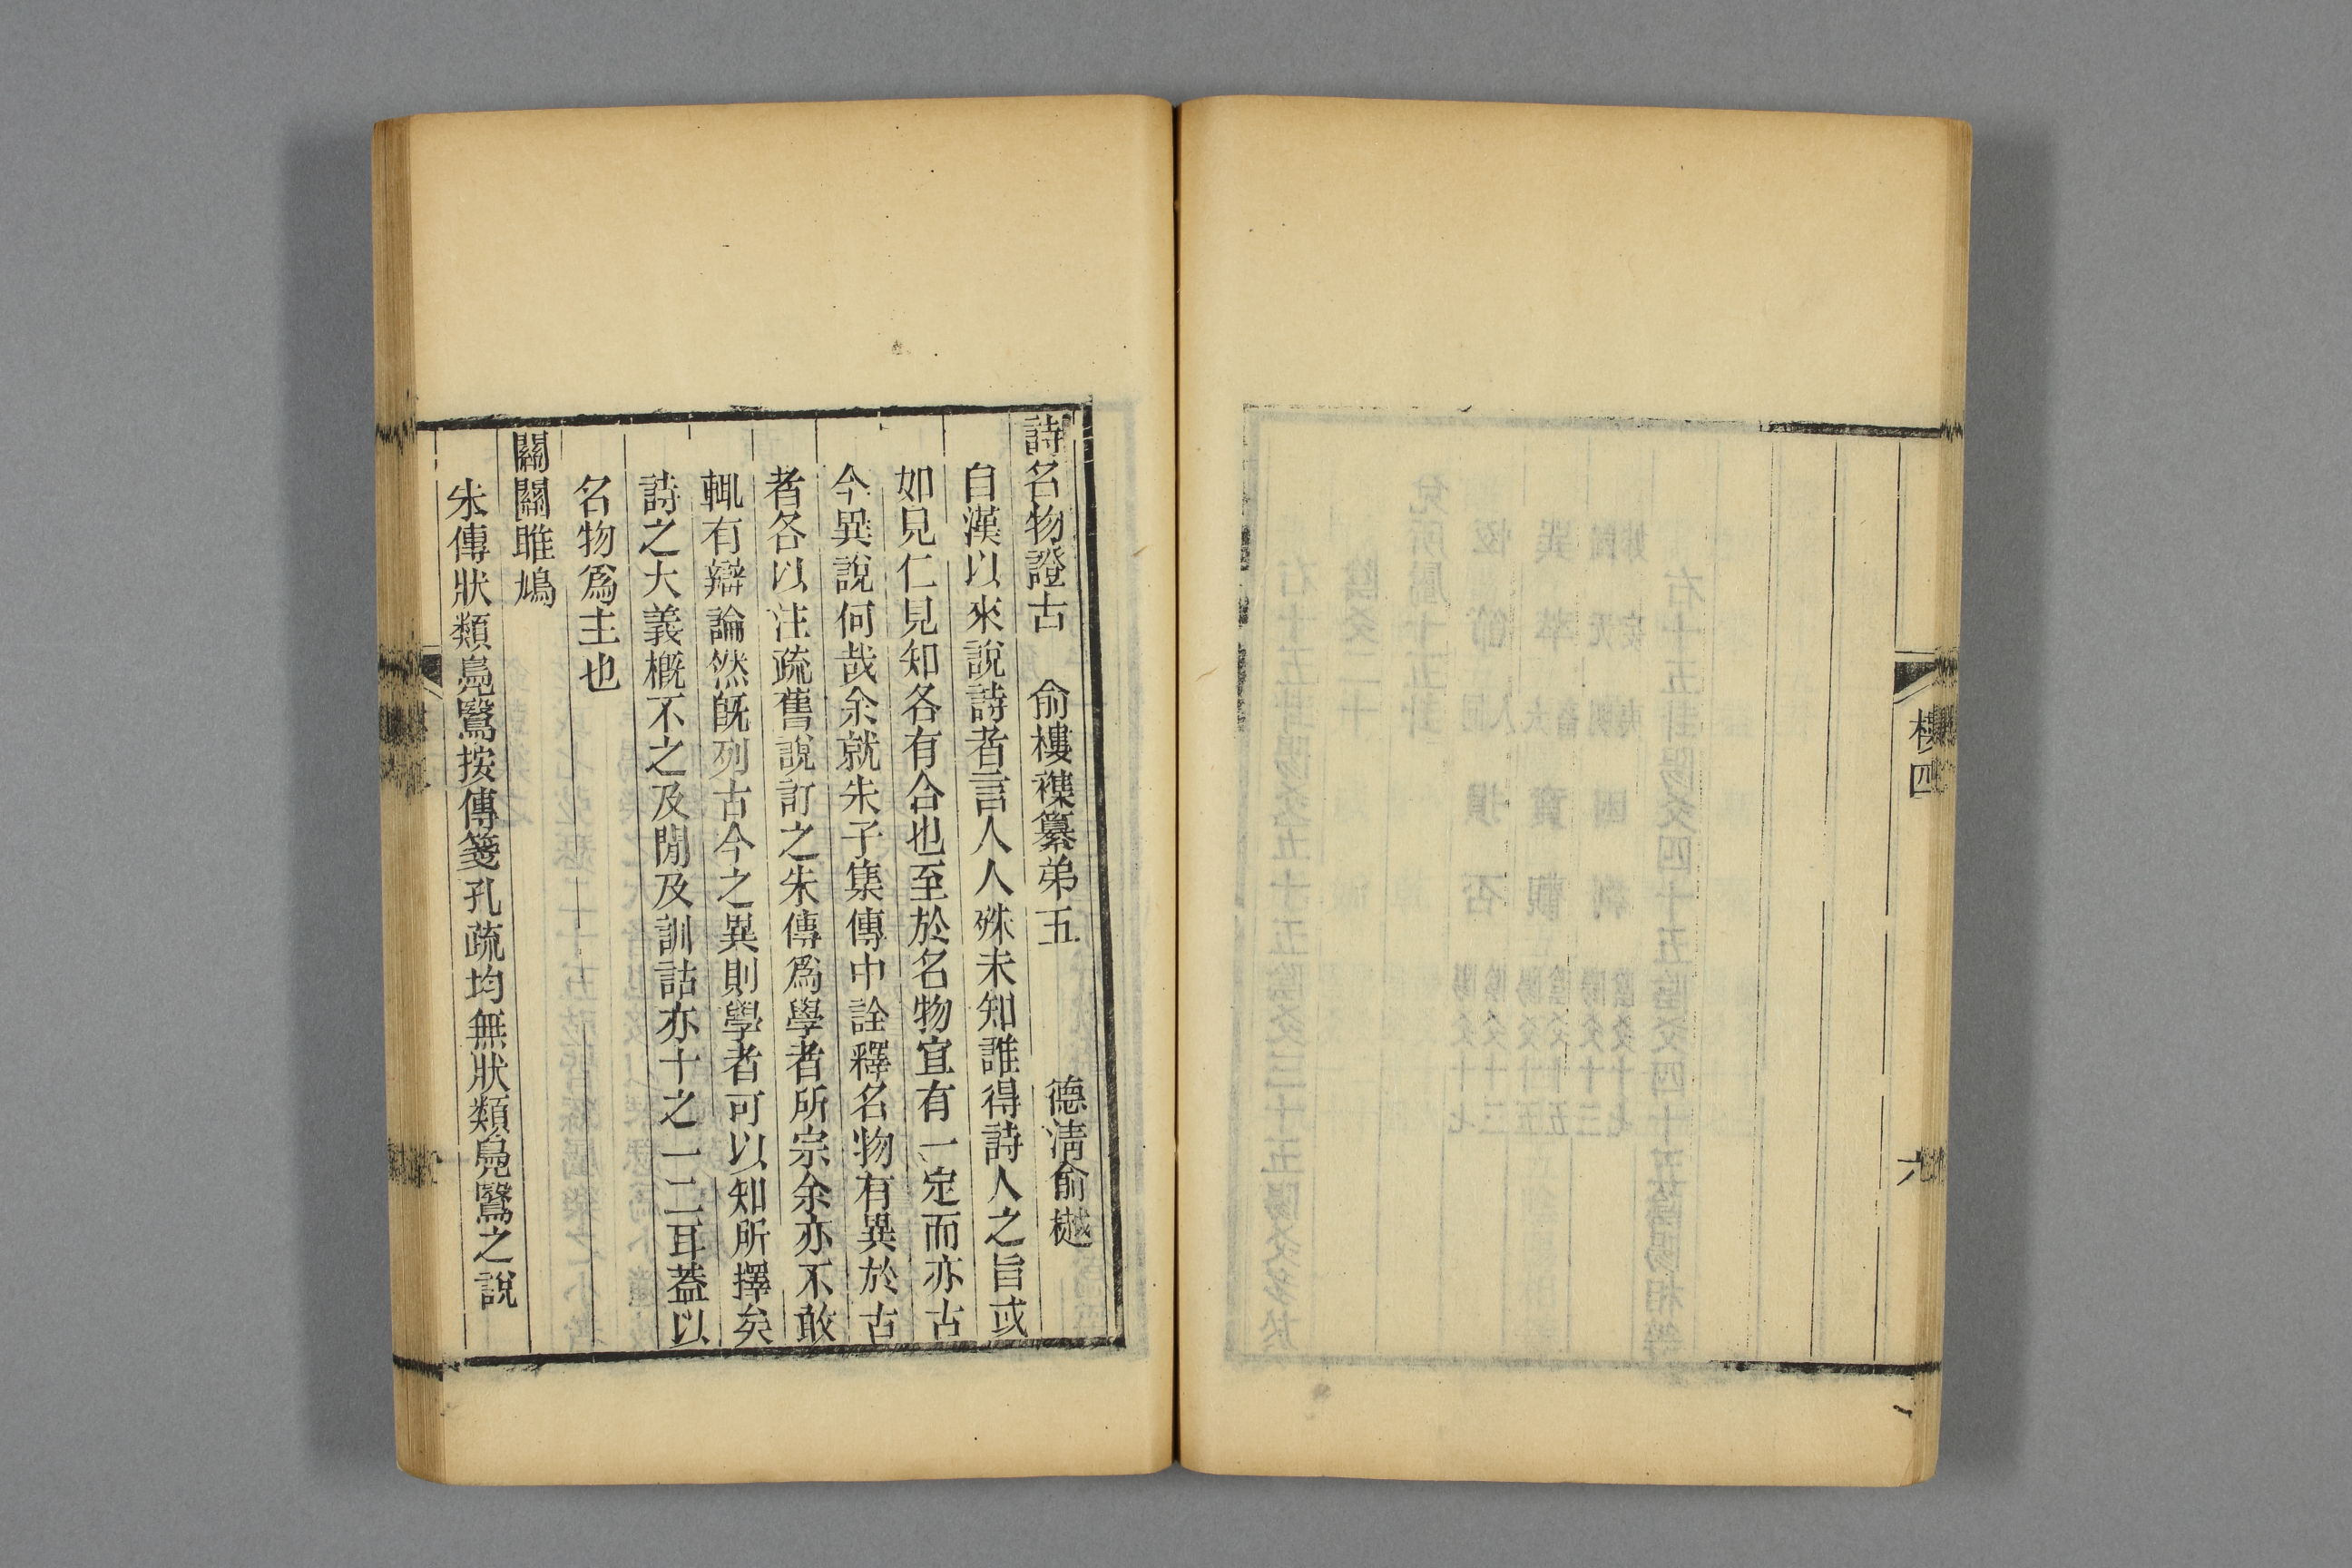 樓四
九
詩名物證古　俞樓襍纂弟五　德淸俞樾
自漢以來說詩者言人人殊未知誰得詩人之旨或
如見仁見知各有合也至於名物宜有一定而亦古
今異說何哉余就朱子集傳中詮釋名物有異於古
者各以注疏舊說訂之朱傳爲學者所宗余亦不敢
輒有辯論然旣列古今之異則學者可以知所擇矣
詩之大義槪不之及閒及訓詁亦十之一二耳葢以
名物爲主也
關關雎鳩
朱傳狀類鳧鷖按傳箋孔疏均無狀類鳧鷖之說